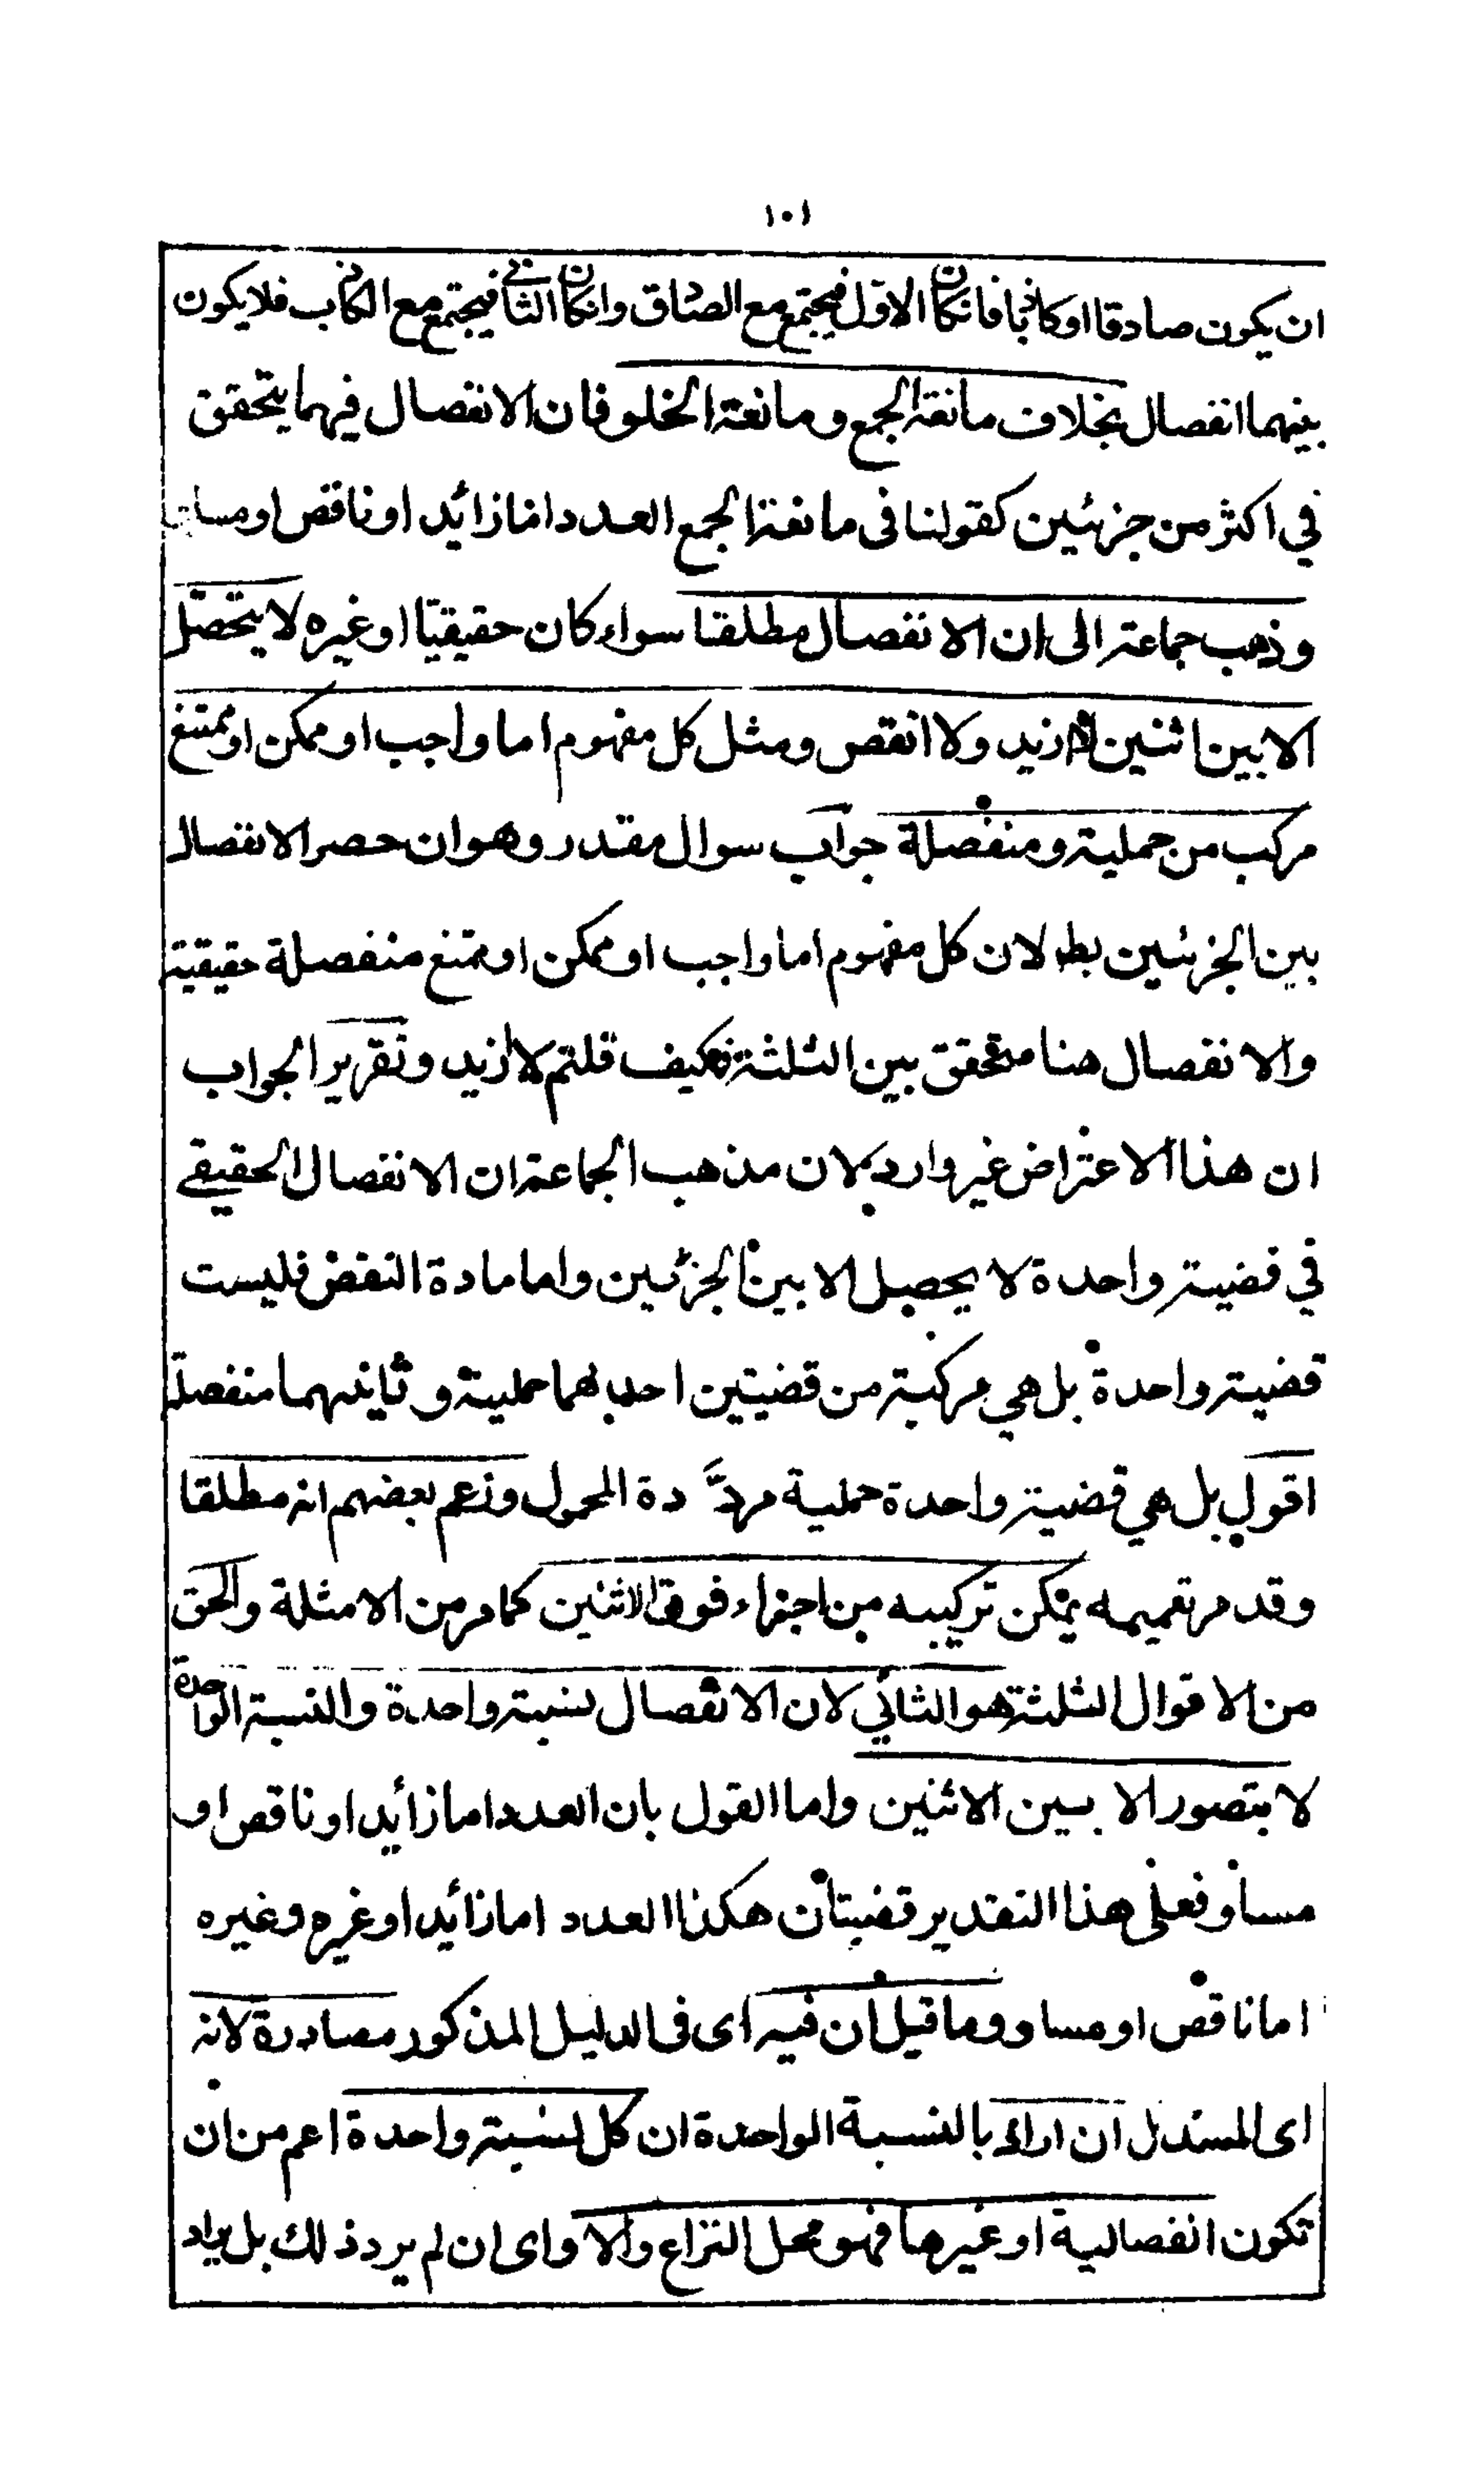 ١٠١
ان يكون صادقا او كاذبا فانكان الاوّل فيجتمع مع الصادق وانكان الثانی فيجتمع مع الكاذب فلا يكون
بينهما انفصال بخلاف مانعة الجمع ومانعة الخلو فان الانفصال فيهما يتحقق
في اكثر من جزئين كقولنا فى مانعة الجمع العدد اما زائد او ناقص او مساو
وذهب جماعة الى ان الانفصال مطلقا سواء كان حقيقيّا او غيره لا يتحصّل
الا بين اثنين لا ازيد ولا انقص ومثل كل مفهوم اما واجب او ممكن او ممتنع
مركب من حملية ومنفصلة جواب سوال مقدر وهو ان حصر الانفصال
بين الجزئين بط لان كل مفهوم اما واجب او ممكن او ممتنع منفصلة حقيقية
والانفصال هنا متحقق بين الثلثة فكيف قلتم لا ازيد وتقرير الجواب
ان هذا الاعتراض غير وارد لان مذهب الجماعة ان الانفصال الحقيقے
في قضية واحدة لا يحصل الا بين الجزئين واما مادة النقض فليست
قضية واحدة بل هي مركبة من قضيتين احدٰهما حملية وثانيهما منفصلة
اقول بل هي قضية واحدة حملية مردَّدة المحمول وزعم بعضهم انه مطلقا
وقد مر تعميمه يمكن تركيبه من اجزاء فوق الاثنين كما مر من الامثلة والحق
من الاقوال الثلثة هو الثاني لان الانفصال نسبة واحدة والنسبة الواحدة
لا يتصور الا بين الاثنين واما القول بان العدد اما زائد او ناقص او
مساو فعلى هذا التقدير قضيتان هكذا العدد اما زائد او غيره وغيره
اما ناقص او مساو وما قيل ان فيه اى فى الدليل المذكور مصادرة لانه
اى المستدل ان اراد بالنسبة الواحدة ان كل نسبة واحدة اعم من ان
تكون انفصالية او غيرها فهو محل النزاع والا واى ان لم يرد ذلك بل يراد